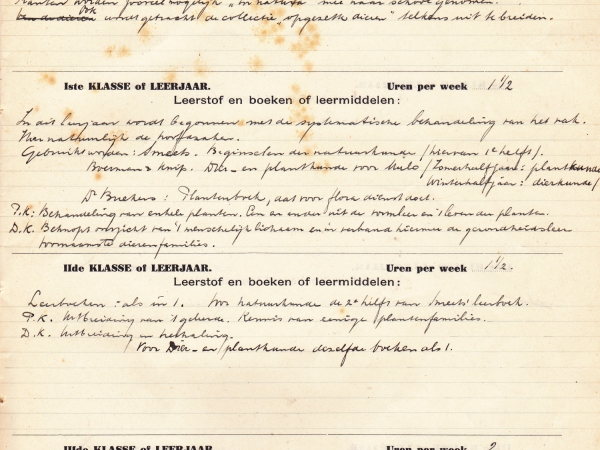 Planten worden zooveel mogelijk "in natura" mee naar school genomen.
Ook wordt getracht de collectie "opgezette dieren" telkens uit te breiden.
Iste KLASSE of LEERJAAR. Uren per week 1 1/2
Leerstof en boeken of leermiddelen:
In dit leerjaar wordt begonnen met de systematische behandeling van het vak.
Hier natuurlijk de
Gebruikt worden: Smeets. Beginselen der natuurkunde /hiervan 1e helft/.
Boerman & Knip. Dier- en plantkunde voor Mulo /Zomerhalfjaar: plantkunde
Winterhalfjaar: dierkunde/
Dr Brekers: Plantenboek, dat voor flora dienst doet.
P.K: Behandeling van enkele planten. Een en ander uit de vormleer en 't leven der planten.
D.K. Beknopt overzicht van 't menschelijk lichaam en in verband hiermee de gezondheidsleer
voornaamste dierenfamilies.
IIde KLASSE of LEERJAAR. Uren per week 1 1/2.
Leerstof en boeken of leermiddelen:
Leerboeken: als in 1. Voor natuurkunde de 2e helft van Smeets' leerboek.
P.K. Uitbreiding van 't geleerde. Kennis van eenige plantenfamilies.
D.K. Uitbreiding en herhaling.
Voor Dier- en plantkunde dezelfde boeken als 1.
IIIde KLASSE of LEERJAAR. Uren per week 2